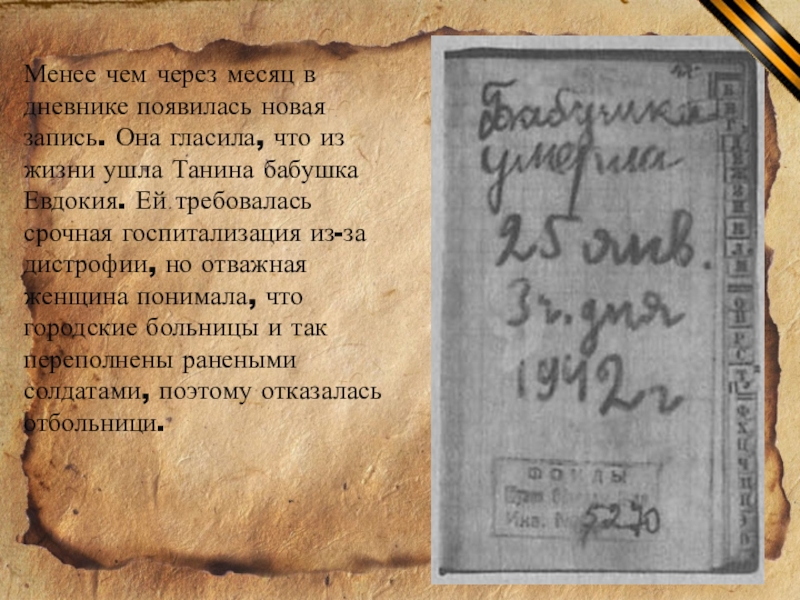 Менее чем через месяц в
дневнике появилась новая
запись. Она гласила, что из
жизни ушла Танина бабушка
Евдокия. Ей требовалась
срочная госпитализация из-за
дистрофии, но отважная
женщина понимала, что
городские больницы и так
переполнены ранеными
солдатами, поэтому отказалась
отбольници.
Бабушка
умерла
25 янв.
3 ч. дня
1942 г
ФОНДЫ
Инв. №
5270